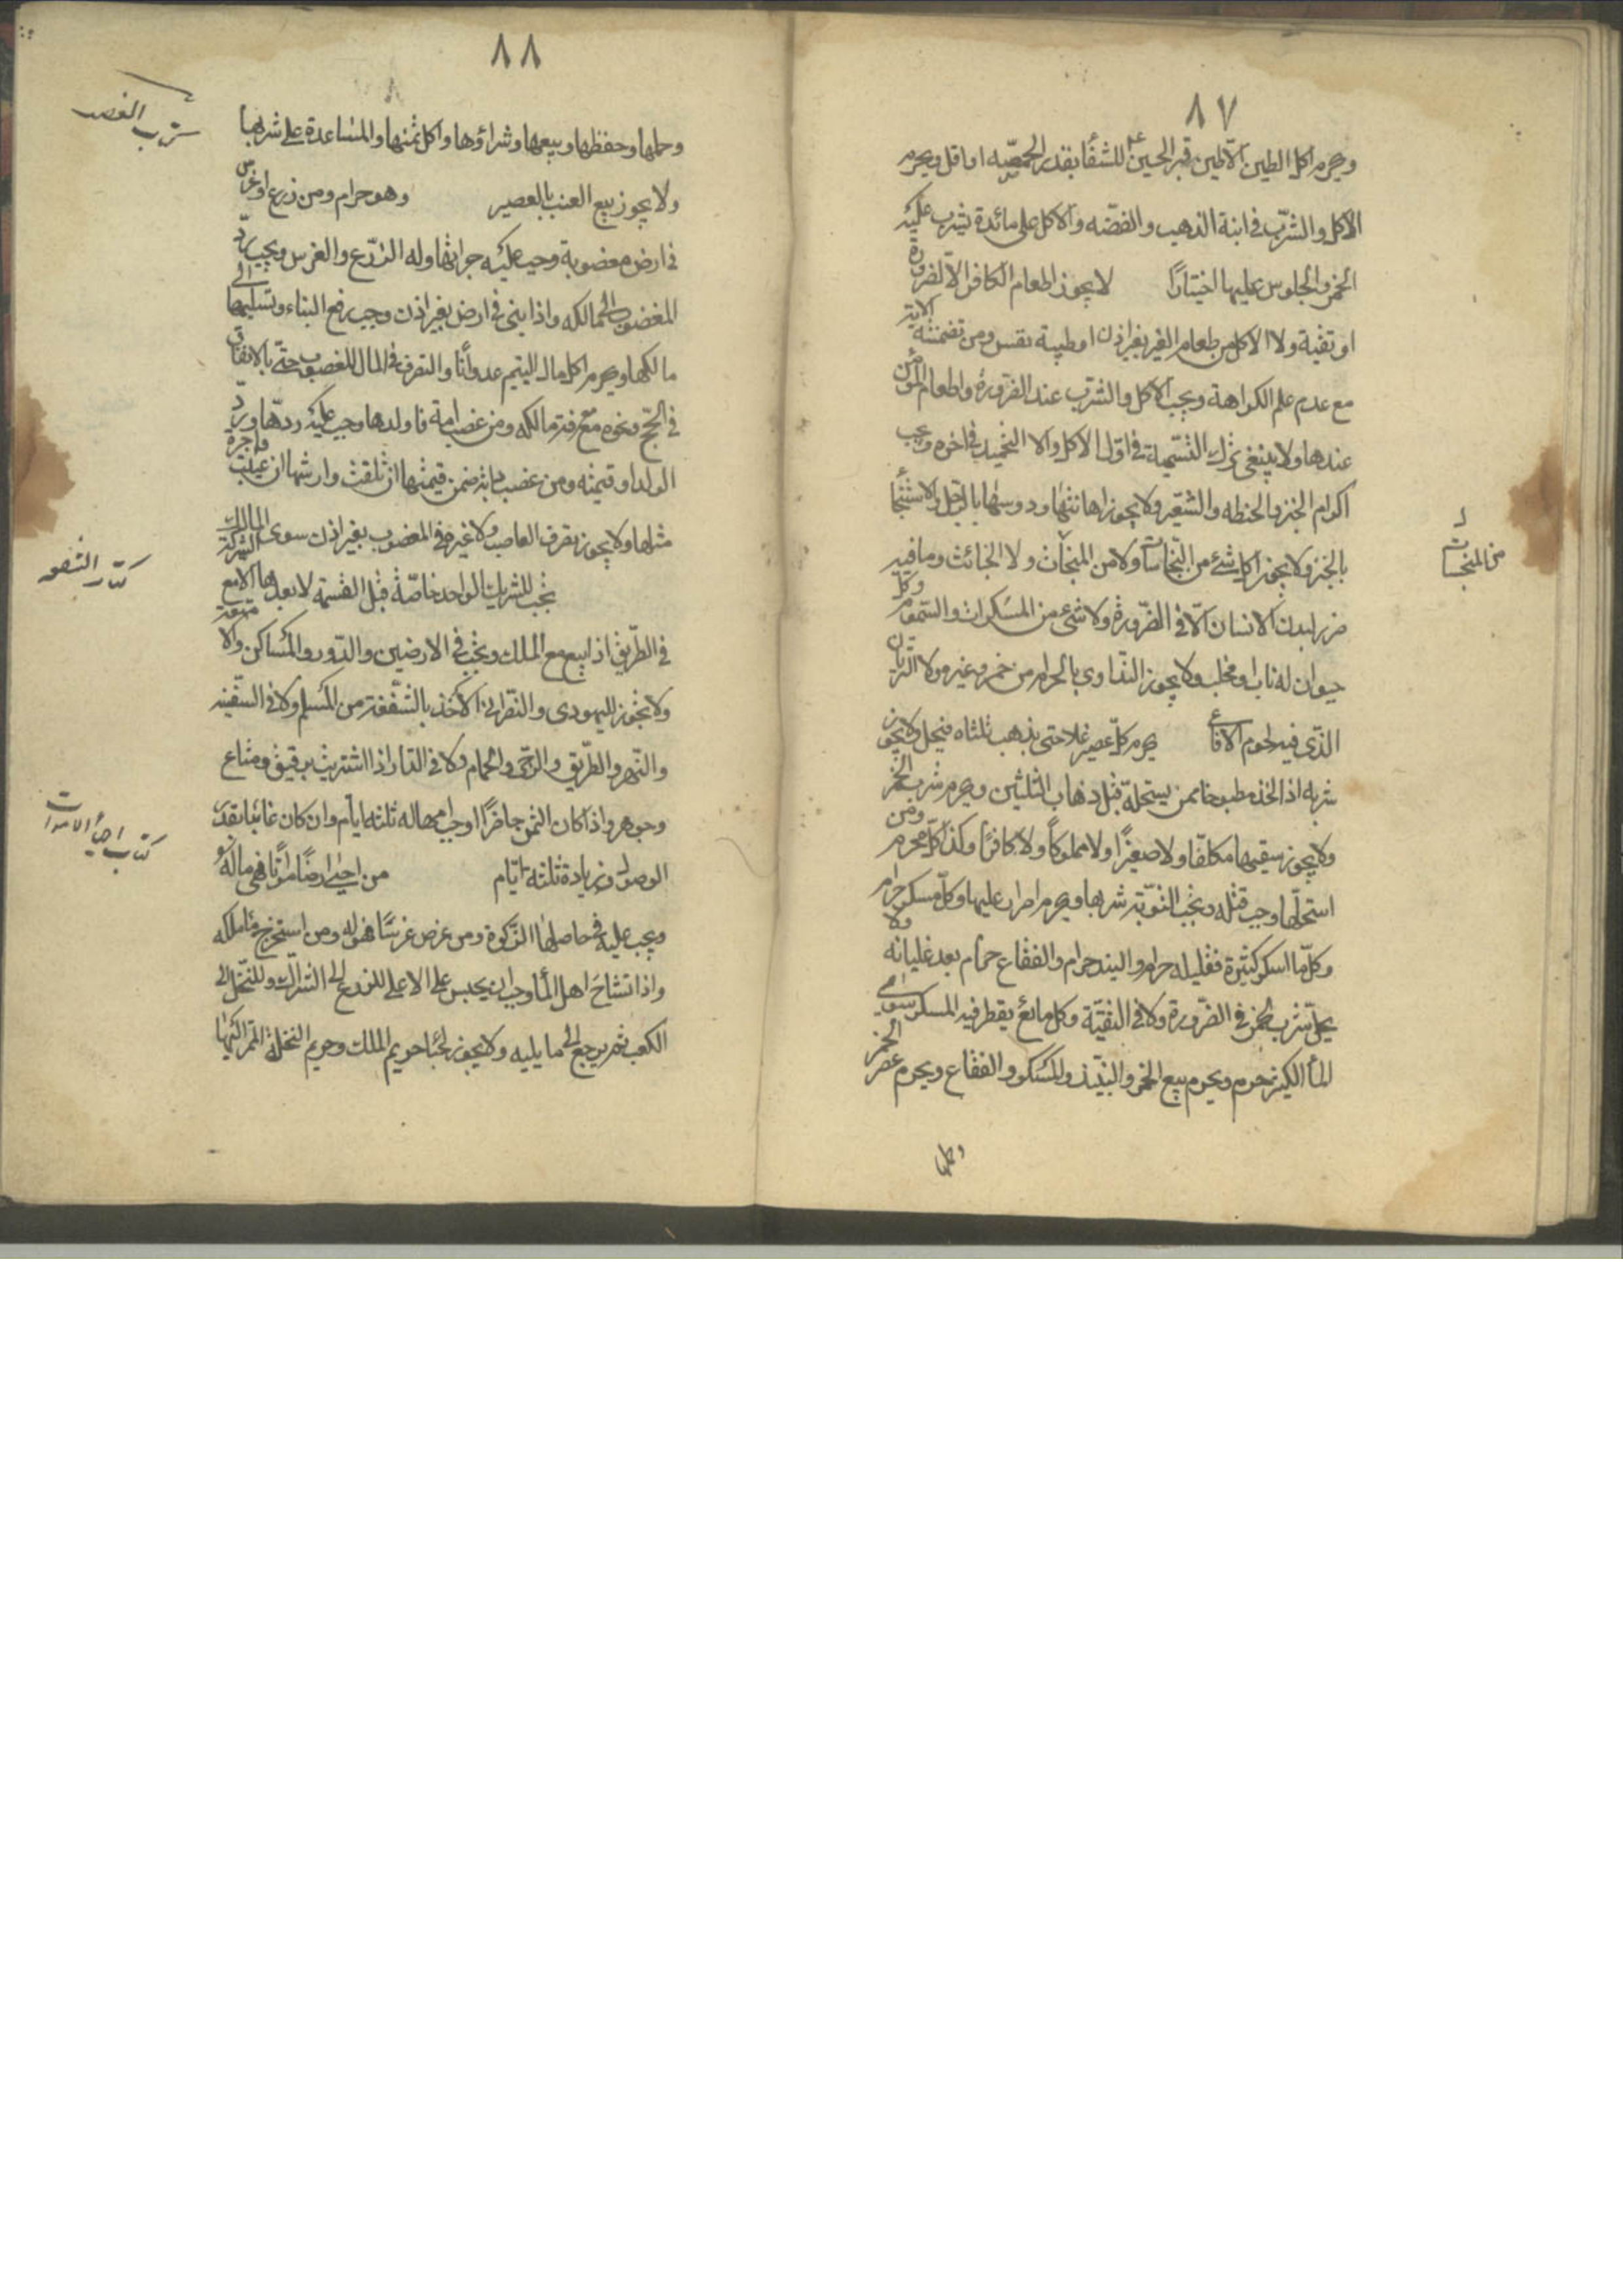 ٨٧
ويحرم اكل الطين الا طين قبر الحسين ع للشفا بقدر الحمصه او اقل ويحرم
الاكل والشرب في انية الذهب والفضه والاكل على مائدة يشرب عليه
الخمر والجلوس عليها اختيارا لا يجوز اطعام الكافر الا لضرورة
او تقية ولا الاكل من طعام الغير بغير اذن او طيبة نفس ومن تضمنته الاية
مع عدم علم الكراهة ويجب الاكل والشرب عند الضرورة واطعام المؤمن
عندها ولا ينبغي ترك التسمية في اول الاكل ولا التحميد في اخره ويجب
اكرام الخبز والحنطه والشعير ولا يجوز اهانتها ودوسها بالرجل والاستنجا
بالخبز ولا يجوز اكل شئ من النجاسات ولا من المنجسات ولا الخبائث وما فيه
من المنجسات
ضرر لبدن الانسان الا في الضرورة ولا شئ من المسكرات والسموم وكل
حيوان له ناب او مخلب ولا يجوز التداوي بالحرام من خمر وغيره ولا الترياق
الذي فيه لحوم الافاعي يحرم كل عصير غلا حتى يذهب ثلثاه فيحل ولا يجوز
شربه اذا اخذ مطبوخا ممن يستحله قبل ذهاب الثلثين ويحرم شرب الخمر
ولا يجوز سقيها مكلفا ولا صغيرا ولا مملوكا ولا كافرا وكذا كل محرم ومن
استحلها وجب قتله وتجب التوبة شربها ويحرم اصرار عليها وكل مسكر حرام
وكل ما اسكر كثيرة فقليله حرام والنبيذ حرام والفقاع حرام بعد غليانه ولا
يحل شرب الخمر في الضرورة ولا في التقية وكل مائع يقطر فيه المسكر سوى
الما الكثير نحرم ويحرم بيع الخمر والنبيذ والمسكر والفقاع ويحرم عصر الخمر
وحملها
٨٨
وحملها وحفظها وبيعها وشراؤها واكل ثمنها والمساعدة على شربها
كتاب الغصب
ولا يجوز بيع العنب بالعصير وهو حرام ومن زرع او غرس
في ارض مغصوبة وجب عليه جراتها وله الزرع والغرس ويجب رد
المغضوب الى مالكه واذا بنى في ارض بغير اذن وجب رفع البناء وتسليمها الى
مالكها ويحرم اكل مال اليتيم عدوانا والتصرف في المال المغصوب حتى بالانفاق
في الحج ونحوه مع معرفة مالكه ومن غصب امة فاولدها وجب عليه ردها ورد
الولد او قيمته ومن غصب دابة ضمن قيمتها ان تلفت وارشها ان عيبت واجرة
مثلها ولا يجوز تصرف الغاصب ولا غيره في المغصوب بغير اذن سوى المالك
كتاب الشفعه
تجب للشريك الواحد خاصة قبل القسمة لا بعدها الا مع الشركة
في الطريق اذا بيع مع الملك وتجب في الارضين والدور والمساكن والا
ولا تجوز لليهودي والنصراني الاخذ بالشفعة من المسلم ولا في السفينه
والنهر والطريق والرحى والحمام ولا في الدار اذا اشتريت برقيق ومتاع
وجوهر واذا كان الثمن حاضرا وجب امهاله ثلثه ايام وان كان غائبا بقدر
كتاب احياء الاموات
الوصول وزيادة ثلثه ايام من احيى ارضا مواتا فهي ماله
ويجب عليه في حاصلها الزكوة ومن غرس غرسا فهو له ومن استخرج ما ملكه
واذا تشاح اهل الما وجب ان يحبس على الاعلى للزرع الى الشراك وللنخل الى
الكعب ثم يرجع الى ما يليه ولا يجوز احيا حريم الملك وحريم النخلة